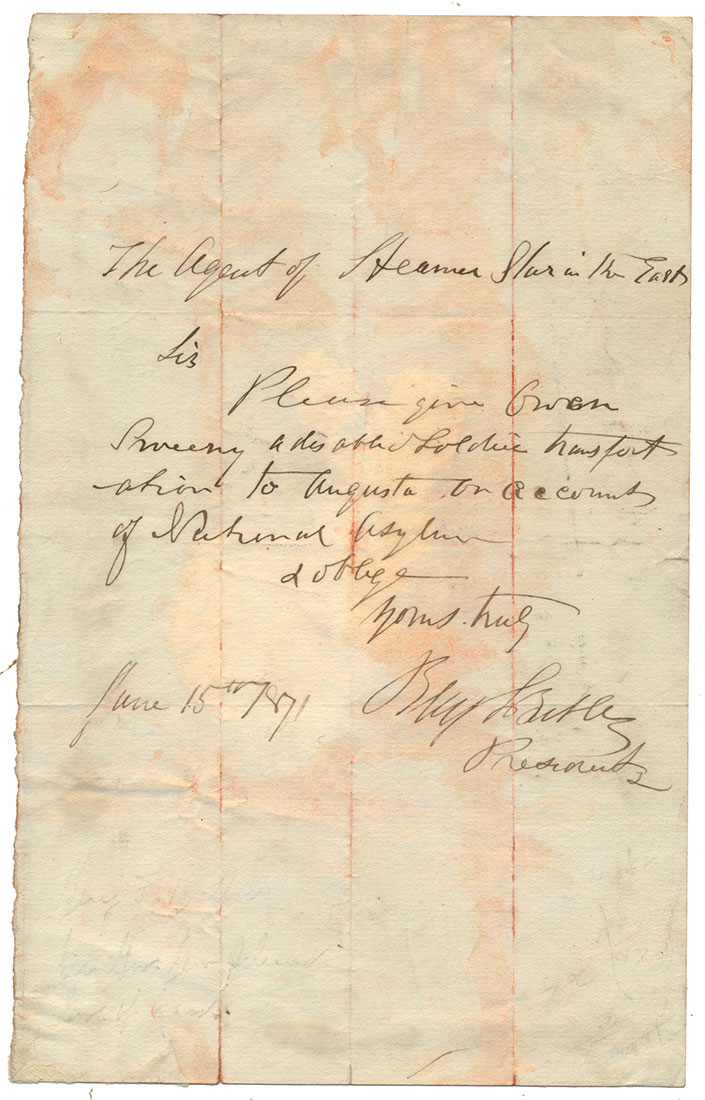 The Agent of Steamer Star in the East
Sir
Please give Owen
Sweeny a disabled Soldier transport
-ation to Augusta on accounts
of National Asylum
& oblige
yours truly
June 15th 1871 Benj F Butler
President